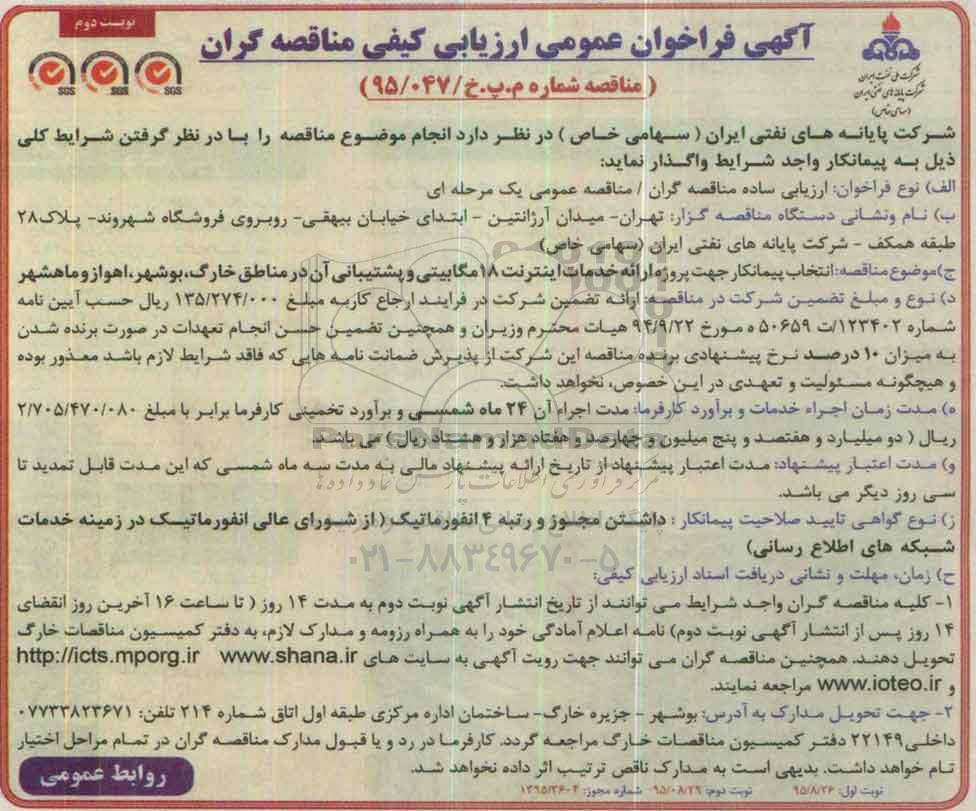 نوبت دوم
آگهی فراخوان عمومی ارزیابی کیفی مناقصه گران
(مناقصه شماره م.پ.خ/۹۵/۰۴۷)
SGS SGS SGS
شرکت ملی نفت ایران
شرکت پایانه های نفتی ایران
(سهامی خاص)
شرکت پایانه های نفتی ایران (سهامی خاص) در نظر دارد انجام موضوع مناقصه را با در نظر گرفتن شرایط کلی
ذیل به پیمانکار واجد شرایط واگذار نماید:
الف) نوع فراخوان: ارزیابی ساده مناقصه گران / مناقصه عمومی یک مرحله ای
ب) نام ونشانی دستگاه مناقصه گزار: تهران- میدان آرژانتین - ابتدای خیابان بیهقی- روبروی فروشگاه شهروند- پلاک۲۸
طبقه همکف - شرکت پایانه های نفتی ایران (سهامی خاص)
ج)موضوع مناقصه:انتخاب پیمانکار جهت پروژه ارائه خدمات اینترنت ۱۸مگابیتی و پشتیبانی آن در مناطق خارگ،بوشهر،اهواز و ماهشهر
د) نوع و مبلغ تضمین شرکت در مناقصه: ارائه تضمین شرکت در فرایند ارجاع کاربه مبلغ ۱۳۵/۲۷۴/۰۰۰ ریال حسب آیین نامه
شماره ۱۲۳۴۰۲/ت ۵۰۶۵۹ ه مورخ ۹۴/۹/۲۲ هیات محترم وزیران و همچنین تضمین حسن انجام تعهدات در صورت برنده شدن
به میزان ۱۰ درصد نرخ پیشنهادی برنده مناقصه این شرکت از پذیرش ضمانت نامه هایی که فاقد شرایط لازم باشد معذور بوده
و هیچگونه مسئولیت و تعهدی در این خصوص، نخواهد داشت.
ه) مدت زمان اجراء خدمات و برآورد کارفرما: مدت اجراء آن ۲۴ ماه شمسی و برآورد تخمینی کارفرما برابر با مبلغ ۲/۷۰۵/۴۷۰/۰۸۰
ریال ( دو میلیارد و هفتصد و پنج میلیون و چهارصد و هفتاد هزار و هشتاد ریال) می باشد.
و) مدت اعتبار پیشنهاد: مدت اعتبار پیشنهاد از تاریخ ارائه پیشنهاد مالی به مدت سه ماه شمسی که این مدت قابل تمدید تا
سی روز دیگر می باشد.
ز) نوع گواهی تایید صلاحیت پیمانکار : داشتن مجوز و رتبه ۴ انفورماتیک ( از شورای عالی انفورماتیک در زمینه خدمات
شبکه های اطلاع رسانی)
۰۲۱-۸۸۳۴۹۶۷۰-۵
ح) زمان، مهلت و نشانی دریافت اسناد ارزیابی کیفی:
۱- کلیه مناقصه گران واجد شرایط می توانند از تاریخ انتشار آگهی نوبت دوم به مدت ۱۴ روز ( تا ساعت ۱۶ آخرین روز انقضای
۱۴ روز پس از انتشار آگهی نوبت دوم) نامه اعلام آمادگی خود را به همراه رزومه و مدارک لازم، به دفتر کمیسیون مناقصات خارگ
تحویل دهند. همچنین مناقصه گران می توانند جهت رویت آگهی به سایت های http://icts.mporg.ir www.shana.ir
و www.ioteo.ir مراجعه نمایند.
۲- جهت تحویل مدارک به آدرس: بوشهر - جزیره خارگ- ساختمان اداره مرکزی طبقه اول اتاق شماره ۲۱۴ تلفن: ۰۷۷۳۳۸۲۳۶۷۱
داخلی۲۲۱۴۹ دفتر کمیسیون مناقصات خارگ مراجعه گردد. کارفرما در رد و یا قبول مدارک مناقصه گران در تمام مراحل اختیار
تام خواهد داشت. بدیهی است به مدارک ناقص ترتیب اثر داده نخواهد شد.
نوبت اول: ۹۵/۸/۲۶ نوبت دوم: ۹۵/۰۸/۲۹ شماره مجوز: ۱۳۹۵/۳۶۰۴
روابط عمومی